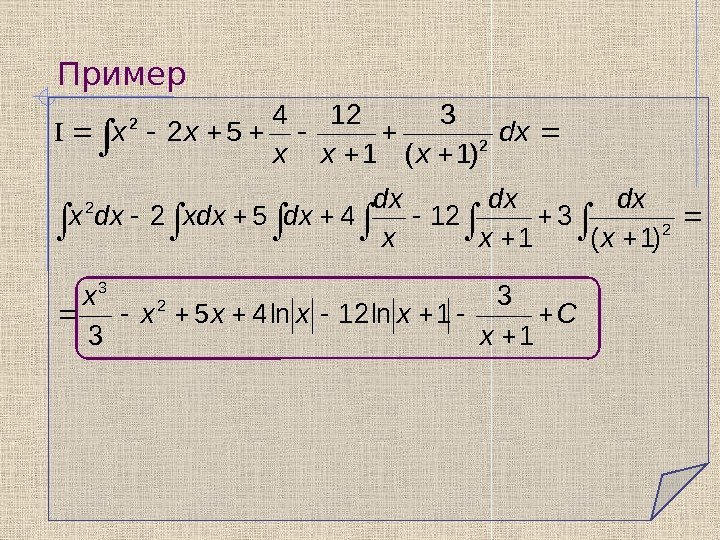 Пример
I = ∫ x² - 2x + 5 + 4/x - 12/(x + 1) + 3/(x + 1)² dx =
∫ x²dx - 2 ∫ xdx + 5 ∫ dx + 4 ∫ dx/x - 12 ∫ dx/(x + 1) + 3 ∫ dx/(x + 1)² =
= x³/3 - x² + 5x + 4ln|x| - 12ln|x + 1| - 3/(x + 1) + C